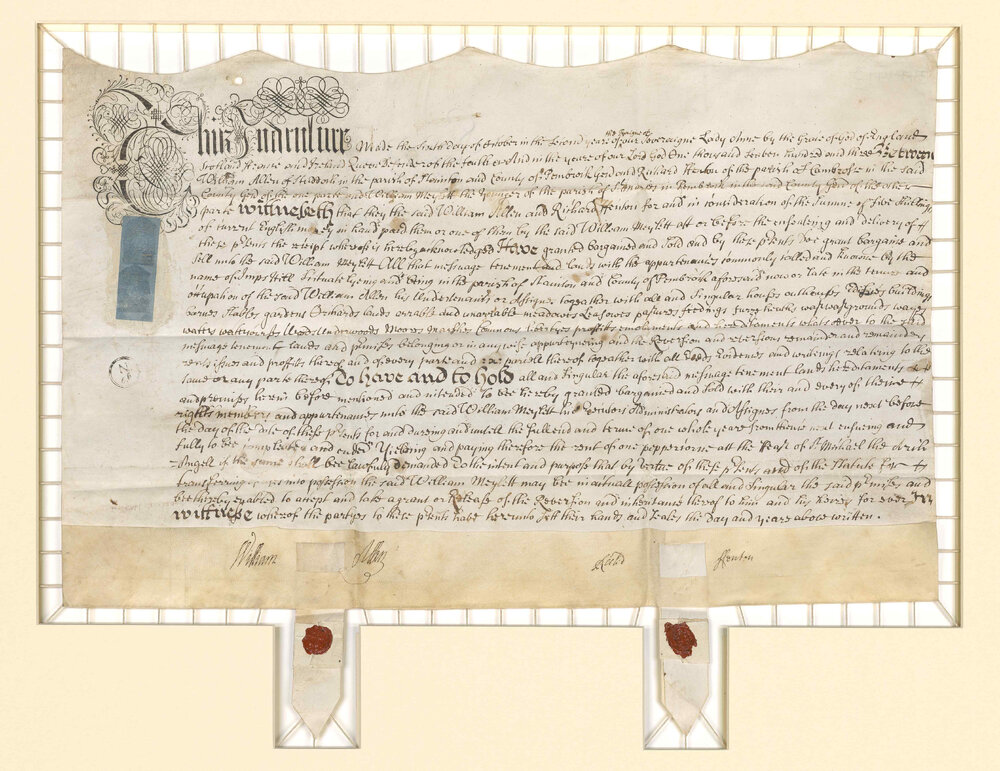 This Indenture Made the Sixth day of October in the second yeare of the Reigne of our Soveraigne Lady Anne by the Grace of God of England
Scotland France and Ireland Queen Defender of the faith &c And in the yeare of our Lord God One thousand seven hundred and three Between
William Allen of in the parish of Stainton and County of Pembrook and Richard Henton of the parish of in the said
County Gent of the one parte and William Meylett the younger of the parish of in Pembrook in the said County Gent of the other
parte witnesseth that they the said William Allen and Richard Henton for and in consideration of the Summe of five shillings
of current English money in hand paid them or one of them by the said William Meylett att or before the ensealing and delivery of
these prsents the receipt whereof is hereby acknowledged Have granted bargained and sold and by these prsents doe grant bargaine and
sell unto the said William Meylett All that messuage tenement and lands with the appurtenances commonly called and knowne by the
name of Hill scituate lyeing and being in the parish of Stainton and County of Pembrook aforesaid now or late in the tenure and
occupation of the said William Allen his undertenants or Assignes togeather with all and Singular houses outhouses Edifices buildings
barnes Stables gardens Orchards lands arrable and unarrable meadowes Leasowes pastures feedings furzes heaths wast grounds wayes
waters watercourses Woods Underwoods Moores Marshes Commons liberties proffitts emoluments and hereditaments whatsoever to the said
messuage tenement lands and premisses belonging or in any wise appurteyneing and the Reversion and reversions remainder and remainders
rents issues and proffitts thereof and of every parte and parcell thereof togeather with all Deeds Evidences and writeings relating to the
same or any parte thereof To have and to hold all and singular the aforesaid messuage tenement lands hereditaments
and premises herein before mentioned and intended to bee hereby granted bargained and sold with their and every of theire
rights members and appurtenances unto the said William Meylett his Executors administrators and Assignes from the day next before
the day of the date of these prsents for and dureing and untill the full end and terme of one whole yeare from thence next ensueing and
fully to bee compleate and ended Yielding and paying therefore the rent of one peppercorne att the feast of St Michael the Arch
Angell if the same shall bee lawfully demanded To the intent and purpose that by vertue of these prsents and of the Statute for
transferring uses into possession the said William Meylett may bee in actuall possession of all and singular the said prmisses and
bee thereby enabled to accept and take a grant or Release of the Reversion and inheritance thereof to him and his heires for ever In
witnesse whereof the partyes to these prsents have hereunto sett their hands and seales the day and yeare above written.
William Allen
Richd Henton